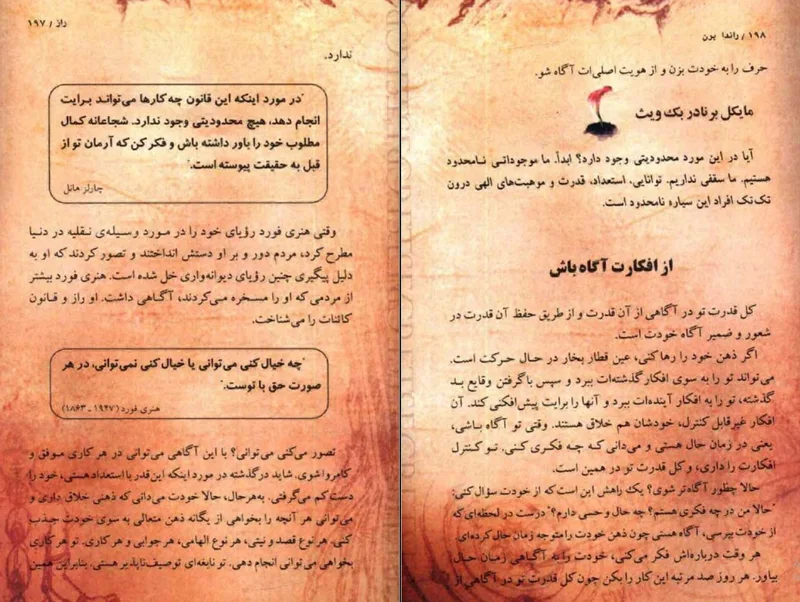 راز / ۱۹۷
ندارد.
"در مورد اینکه این قانون چه کارها می‌تواند برایت
انجام دهد، هیچ محدودیتی وجود ندارد. شجاعانه کمال
مطلوب خود را باور داشته باش و فکر کن که آرمان تو از
قبل به حقیقت پیوسته است."
چارلز هانل
وقتی هنری فورد رؤیای خود را در مورد وسیله‌ی نقلیه در دنیا
مطرح کرد، مردم دور و بر او دستش انداختند و تصور کردند که او به
دلیل پیگیری چنین رؤیای دیوانه‌واری خل شده است. هنری فورد بیشتر
از مردمی که او را مسخره می‌کردند، آگاهی داشت. او راز و قانون
کائنات را می‌شناخت.
"چه خیال کنی می‌توانی یا خیال کنی نمی‌توانی، در هر
صورت حق با توست."
هنری فورد (۱۹۴۷ ـ ۱۸۶۳)
تصور می‌کنی می‌توانی؟ با این آگاهی می‌توانی در هر کاری موفق و
کامروا شوی. شاید در گذشته در مورد اینکه این قدر با استعداد هستی، خود را
دست کم می‌گرفتی. به‌هرحال، حالا خودت می‌دانی که ذهنی خلاق داری و
می‌توانی هر آنچه را بخواهی از یگانه ذهن متعالی به سوی خودت جذب
کنی. هر نوع قصد و نیتی، هر نوع الهامی، هر جوابی و هر کاری. تو هر کاری
بخواهی می‌توانی انجام دهی. تو نابغه‌ای توصیف‌ناپذیر هستی. بنابراین همین
۱۹۸ / راندا برن
حرف را به خودت بزن و از هویت اصلی‌ات آگاه شو.
مایکل برنادر بک ویث
آیا در این مورد محدودیتی وجود دارد؟ ابداً. ما موجوداتی نامحدود
هستیم. ما سقفی نداریم. توانایی، استعداد، قدرت و موهبت‌های الهی درون
تک‌تک افراد این سیاره نامحدود است.
از افکارت آگاه باش
کل قدرت تو در آگاهی از آن قدرت و از طریق حفظ آن قدرت در
شعور و ضمیر آگاه خودت است.
اگر ذهن خود را رها کنی، عین قطار بخار در حال حرکت است.
می‌تواند تو را به سوی افکار گذشته‌ات ببرد و سپس با گرفتن وقایع بد
گذشته، تو را به افکار آینده‌ات ببرد و آنها را برایت پیش‌افکنی کند. آن
افکار غیرقابل کنترل، خودشان هم خلاق هستند. وقتی تو آگاه باشی،
یعنی در زمان حال هستی و می‌دانی که چه فکری کنی. تو کنترل
افکارت را داری، و کل قدرت تو در همین است.
حالا چطور آگاه‌تر شوی؟ یک راهش این است که از خودت سؤال کنی:
"حالا من در چه فکری هستم؟ چه حال و حسی دارم؟" درست در لحظه‌ای که
از خودت بپرسی، آگاه هستی چون ذهن خودت را متوجه زمان حال کرده‌ای.
هر وقت درباره‌اش فکر می‌کنی، خودت را به آگاهی زمان حال
بیاور. هر روز صد مرتبه این کار را بکن چون کل قدرت تو در آگاهی از